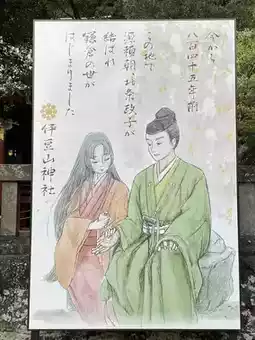 今から
八百四十五年前
この地で
源頼朝と北条政子が
結ばれ
鎌倉の世が
はじまりました
伊豆山神社